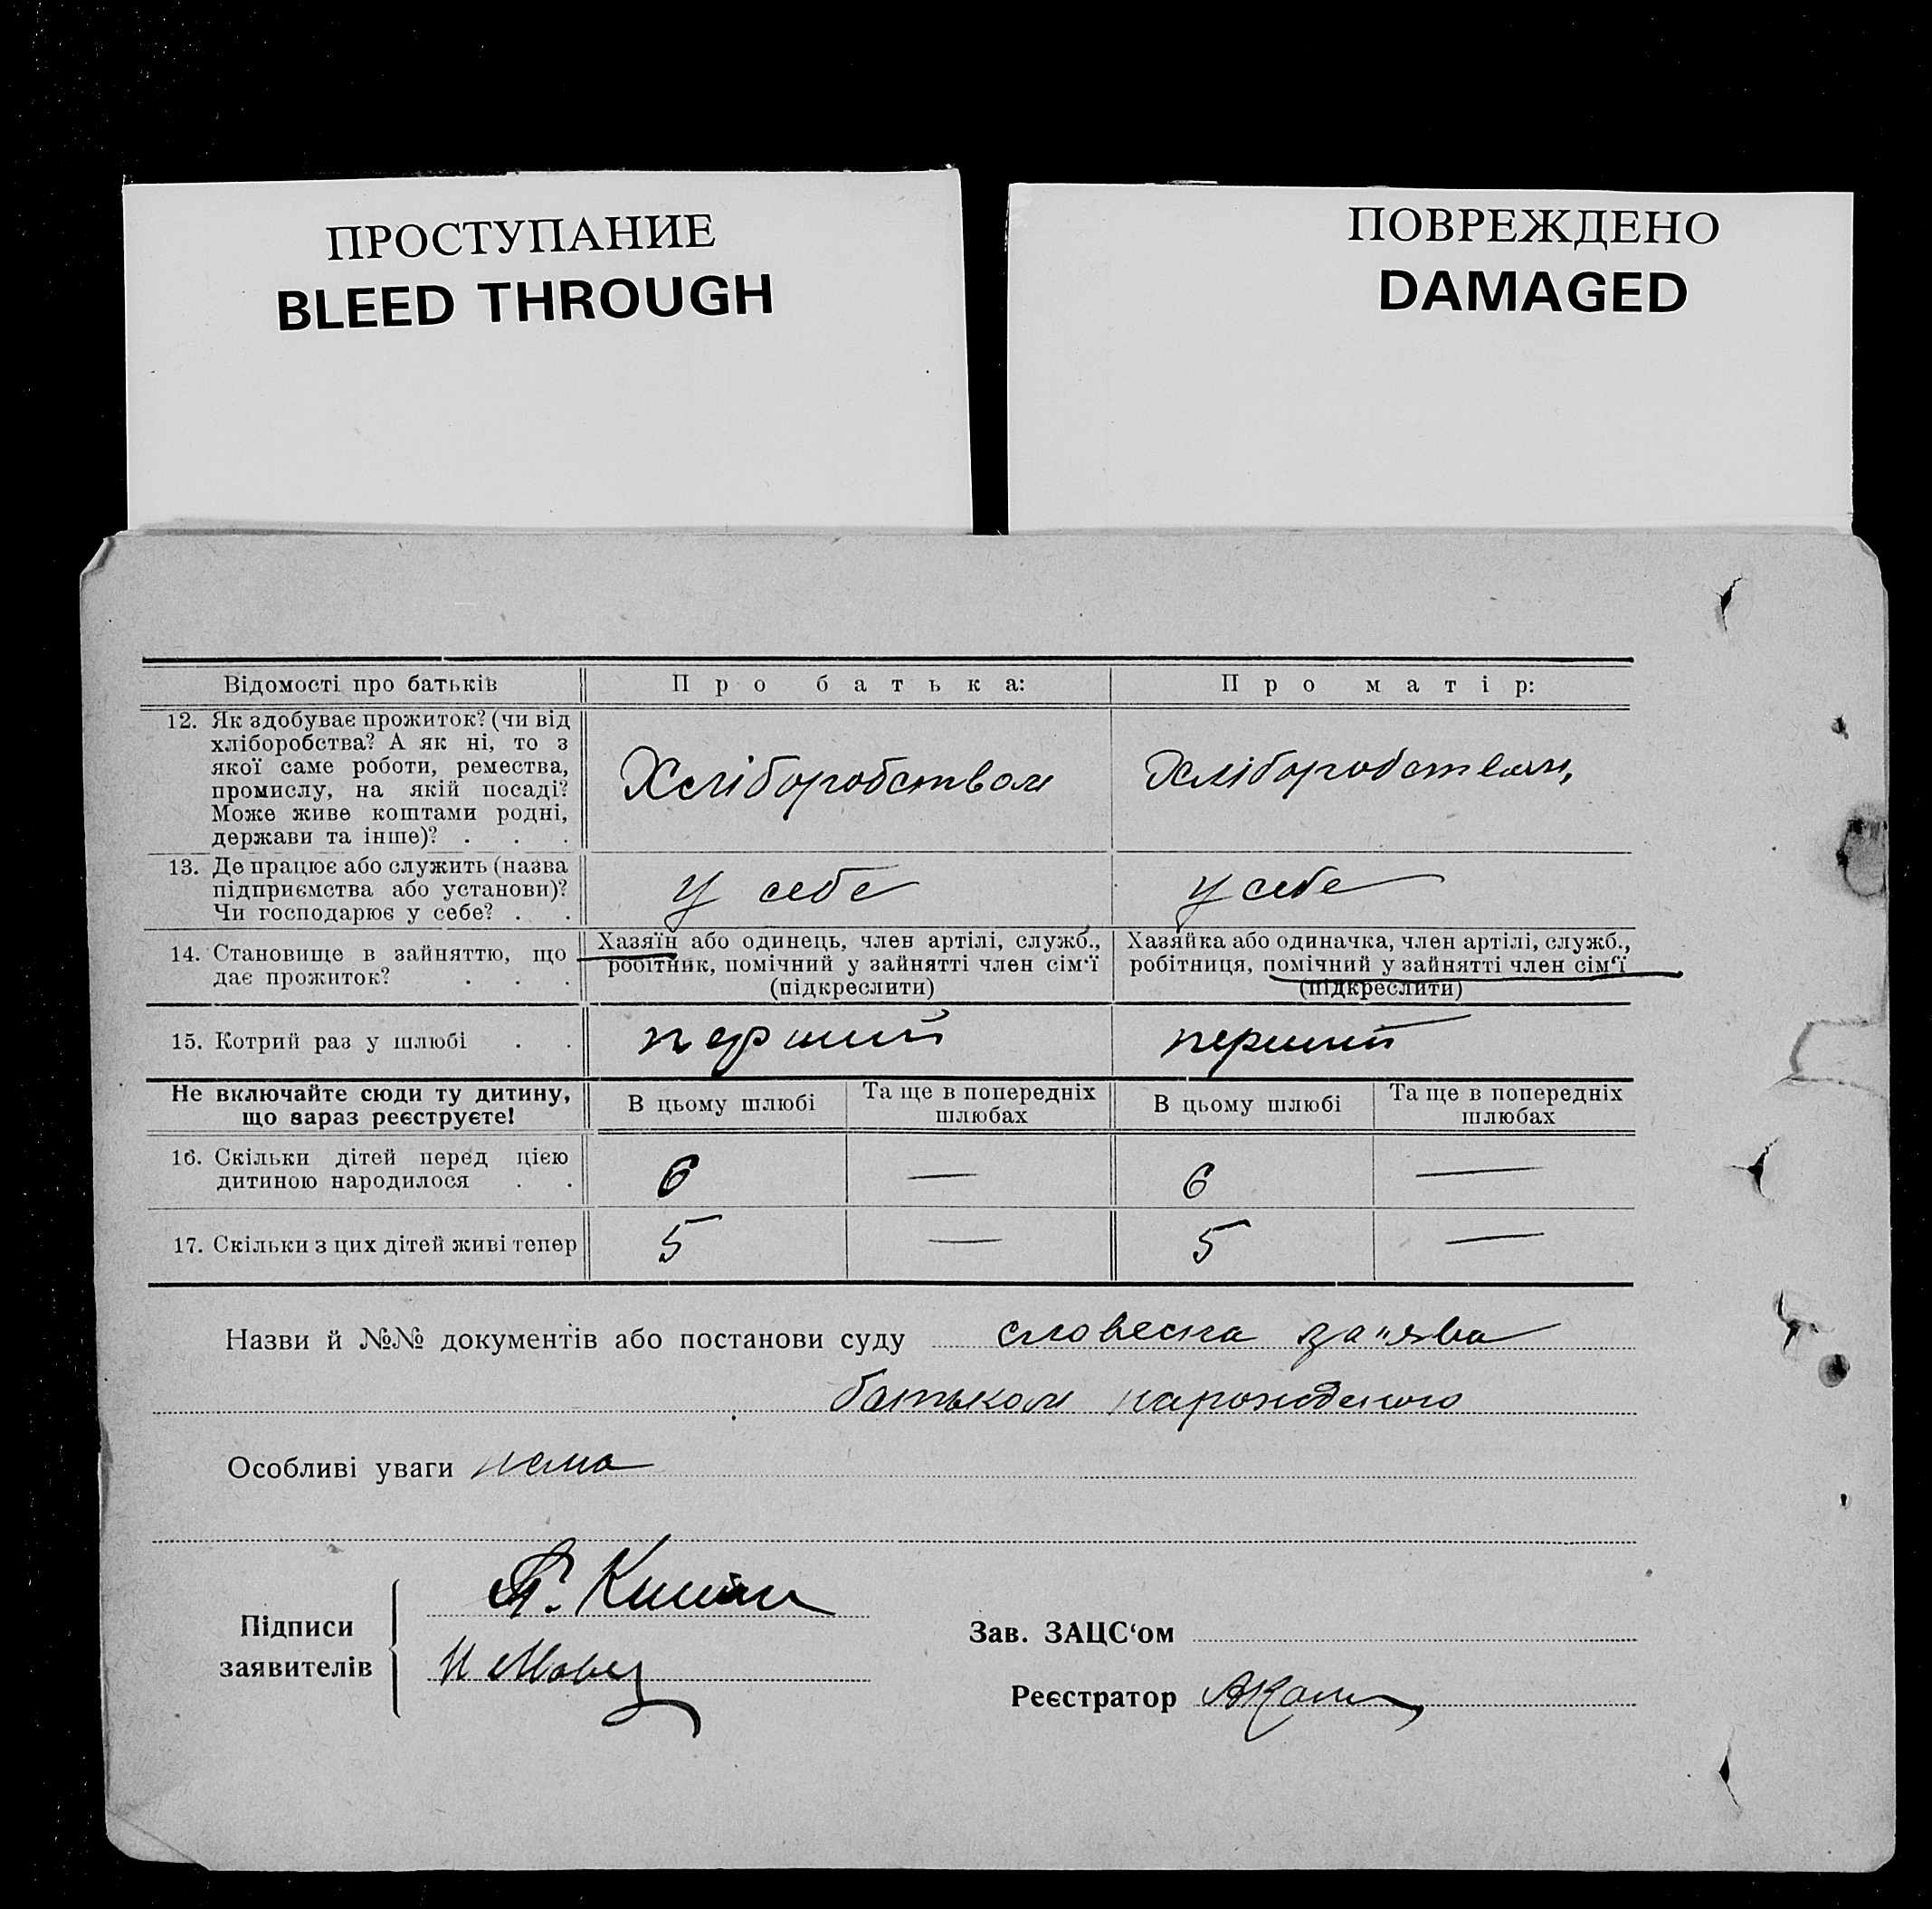 ПРОСТУПАНИЕ
BLEED THROUGH
ПОВРЕЖДЕНО
DAMAGED
Відомості про батьків
Про батька:
Про матір:
12. Як здобуває прожиток? (чи від
хліборобства? А як ні, то з
якої саме роботи, ремества,
промислу, на якій посаді?
Може живе коштами родні,
держави та інше)? . . .
Хліборобством
Хліборобством,
13. Де працює або служить (назва
підприємства або установи)?
Чи господарює у себе? . .
у себе
у себе
14. Становище в зайняттю, що
дає прожиток? . . .
Хазяїн або одинець, член артілі, служб.,
робітник, помічний у зайнятті член сім‘ї
(підкреслити)
Хазяйка або одиначка, член артілі, служб.,
робітниця, помічний у зайнятті член сім‘ї
(підкреслити)
15. Котрий раз у шлюбі . .
перший
перший
Не включайте сюди ту дитину,
що зараз реєструєте!
В цьому шлюбі
Та ще в попередніх
шлюбах
В цьому шлюбі
Та ще в попередніх
шлюбах
16. Скільки дітей перед цією
дитиною народилося . .
6
—
6
—
17. Скільки з цих дітей живі тепер
5
—
5
—
Назви й №№ документів або постанови суду словесна за"ява
батьком народженого
Особливі уваги нема
Підписи
заявителів
Зав. ЗАЦС‘ом
Реєстратор